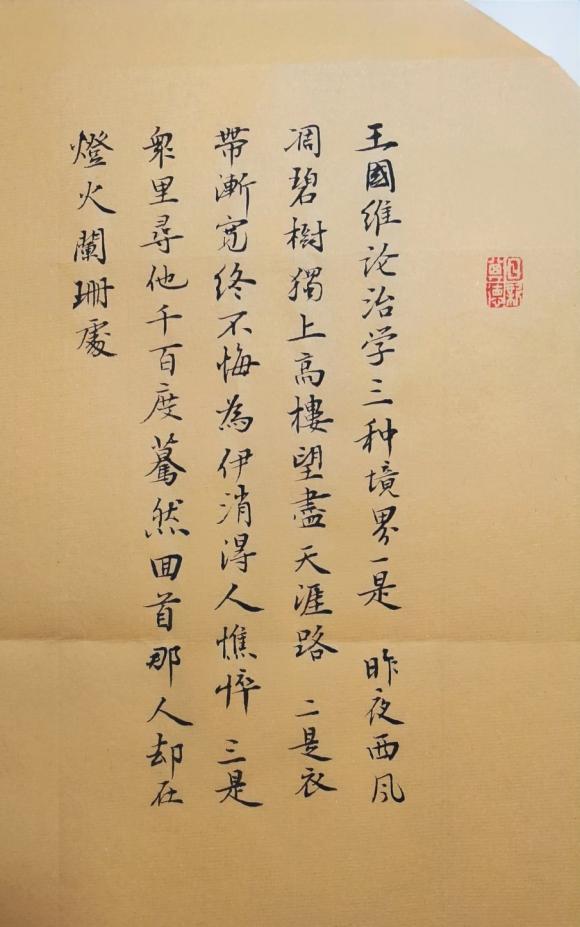 王國維论治学三种境界一是 昨夜西风
凋碧樹獨上高樓望盡天涯路 二是衣
帶漸宽终不悔為伊消得人憔悴 三是
衆里尋他千百度驀然回首那人却在
燈火闌珊處